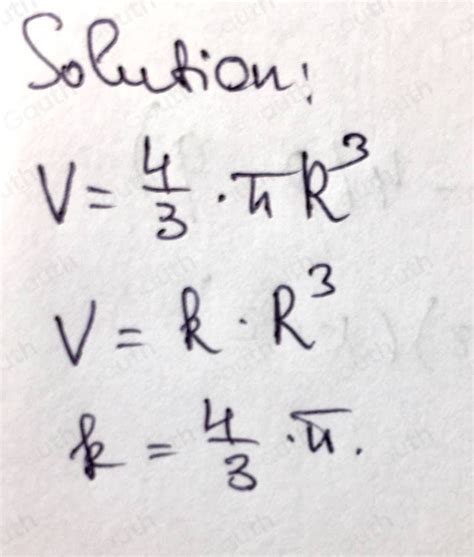 Solution:
V = 4/3 · π R³
V = k · R³
k = 4/3 · π.